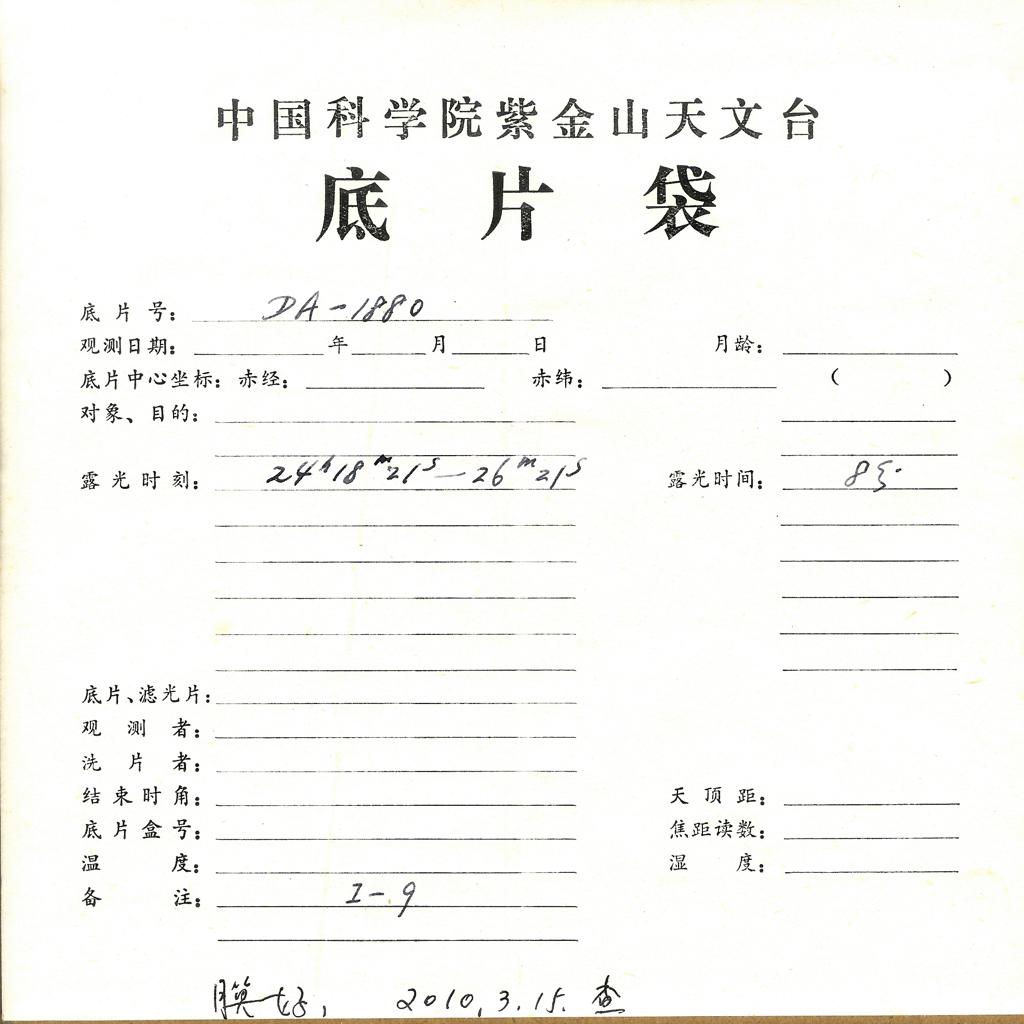 中国科学院紫金山天文台
底片袋
底片号: DA-1880
观测日期: 年 月 日 月龄:
底片中心坐标: 赤经: 赤纬: ( )
对象、目的:
露光时刻: 24h18m21s—26m21s 露光时间: 8分
底片、滤光片:
观测者:
洗片者:
结束时角: 天顶距:
底片盒号: 焦距读数:
温度: 湿度:
备注: I-9
膜好, 2010.3.15.查